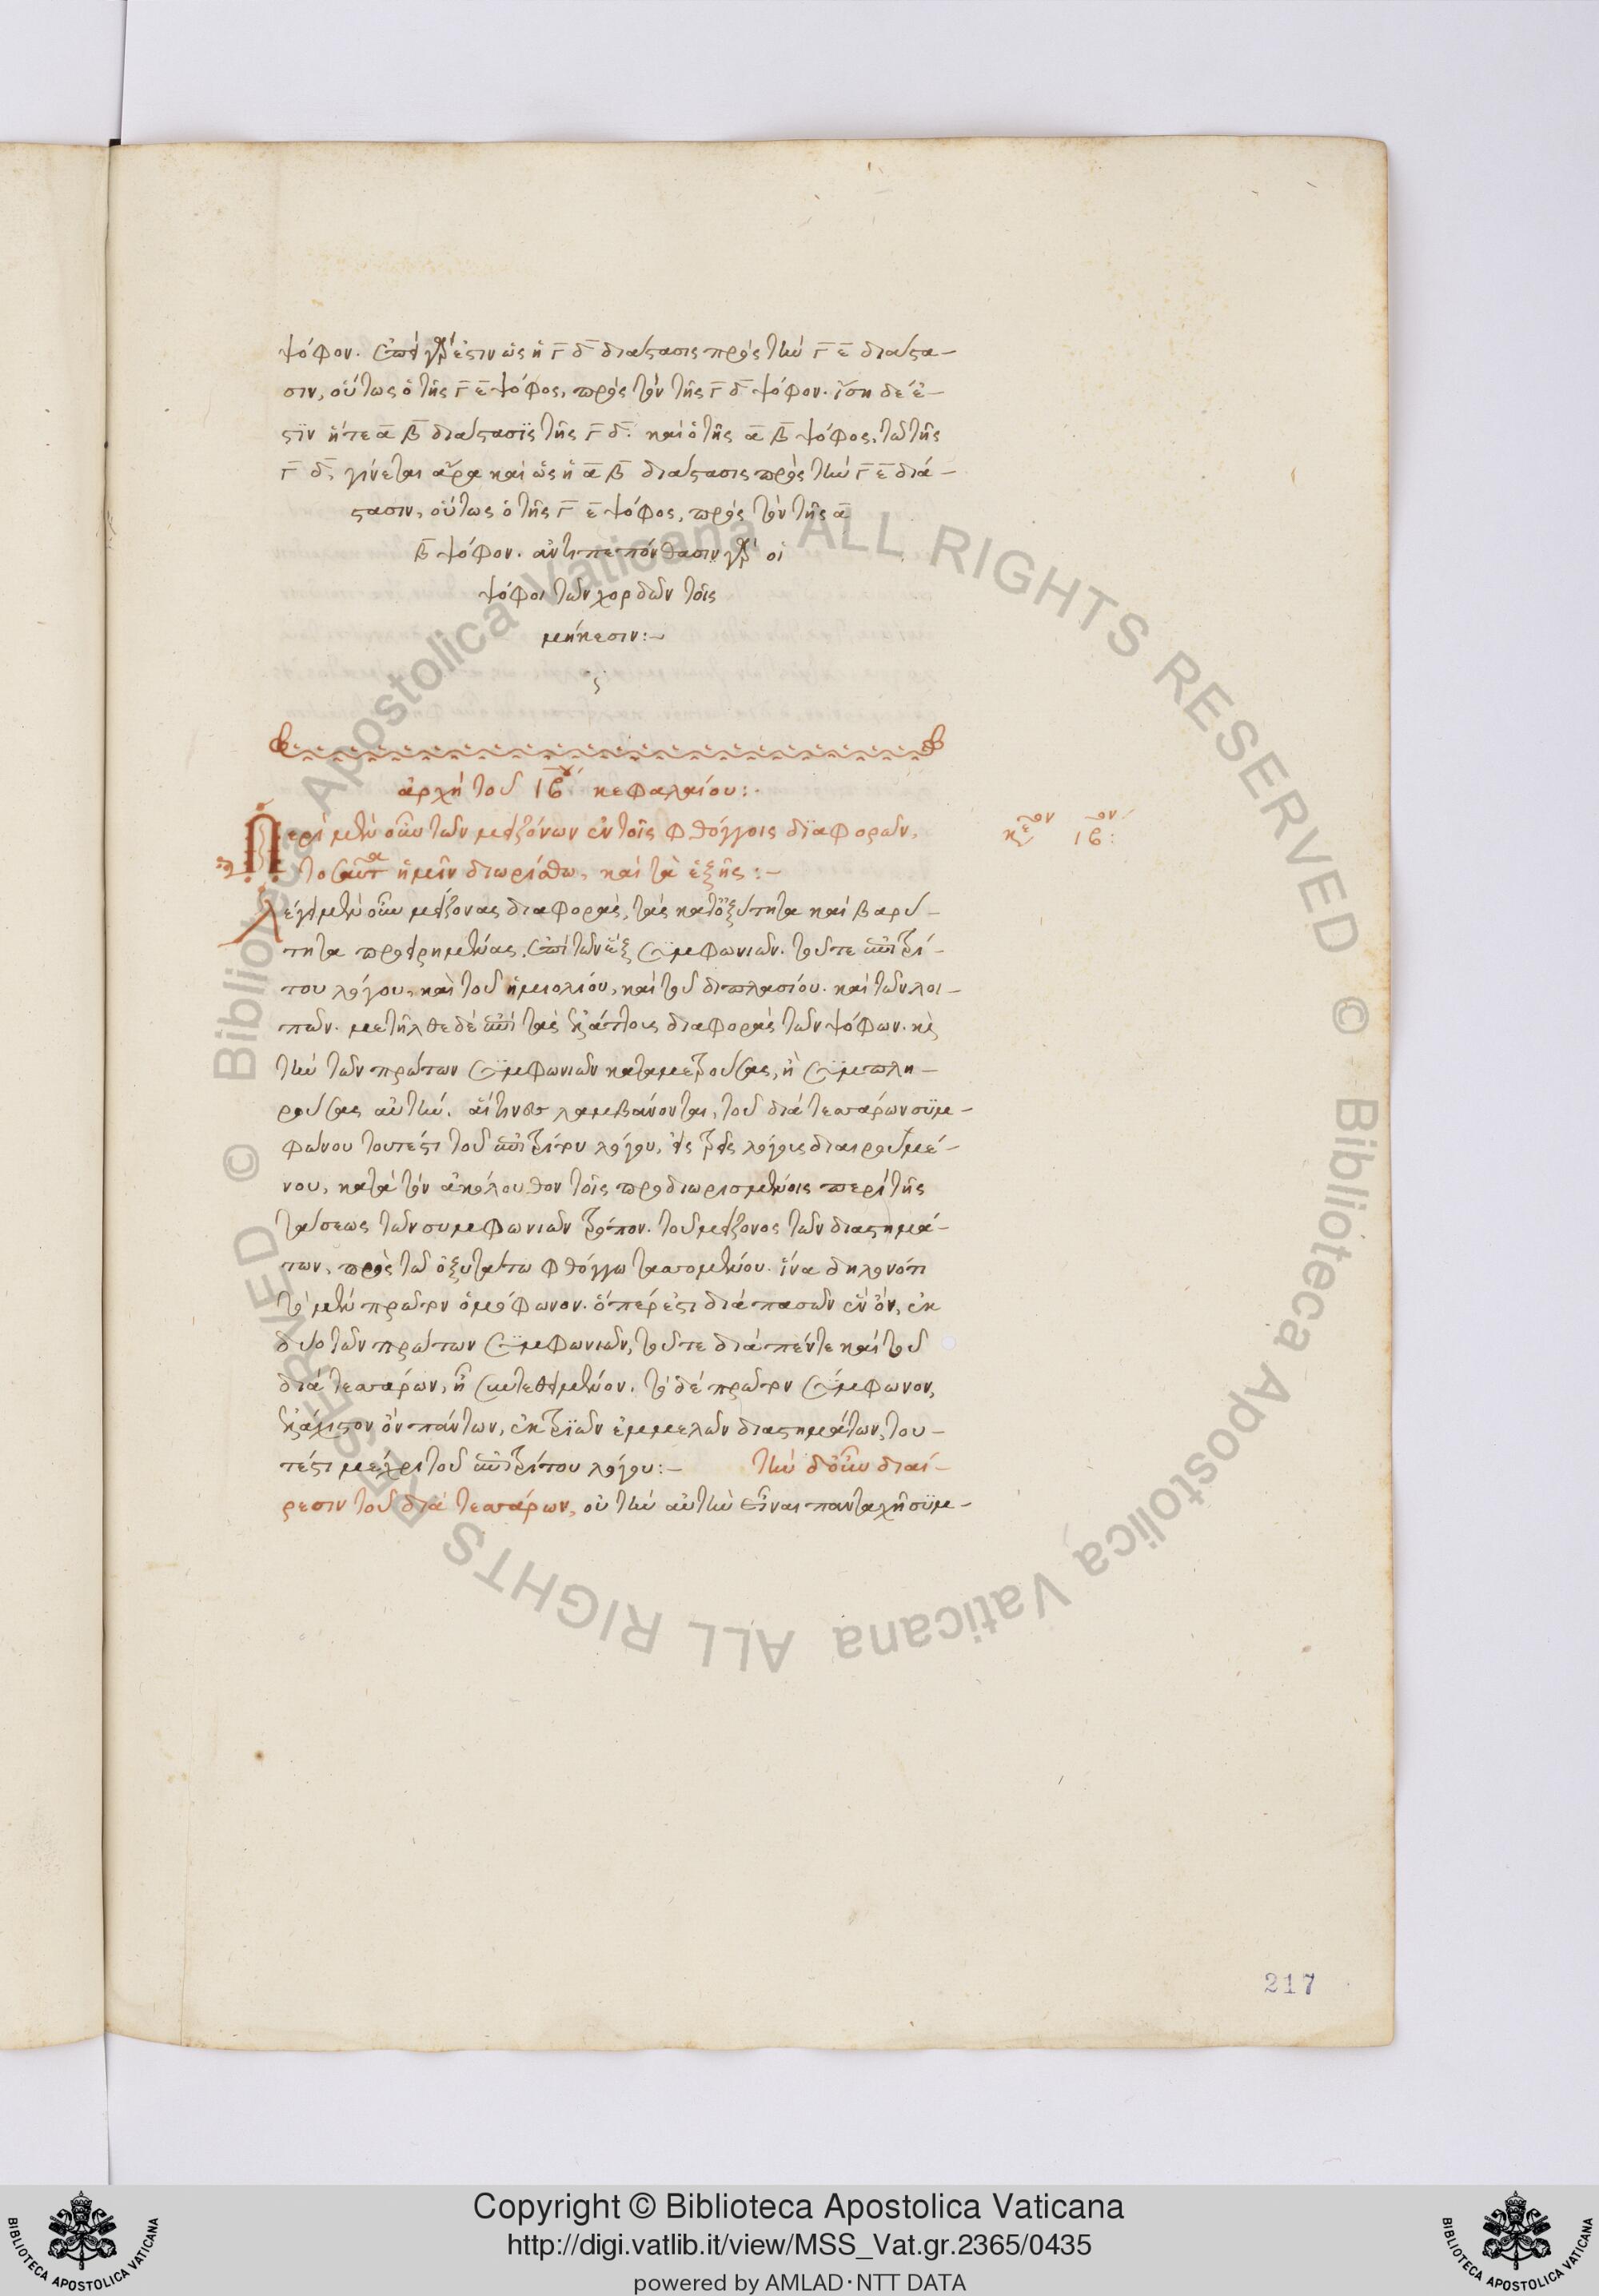 ψόφον. ἐπεὶ γάρ ἐστιν ὡς ἡ γ δ διάστασις πρὸς τὴν γ ε διάστα-
σιν, οὕτως ὁ τῆς γ ε ψόφος, πρὸς τὸν τῆς γ δ ψόφον. ἴση δέ ἐ-
στϊν ἥ τε α β διάστασϊς τῆς γ δ. καὶ ὁ τῆς α β ψόφος, τῶ τῆς
γ δ, γίνεται ἄρα καὶ ὡς ἡ α β διάστασις πρὸς τὴν γ ε διά-
στασιν, οὕτως ὁ τῆς γ ε ψόφος, πρὸς τὸν τῆς α
β ψόφον. ἀντιπεπόνθασιν γὰρ οἱ
ψόφοι τῶν χορδῶν τοῖς
μήκεσιν:-
ἀρχὴ τοῦ ιβ κεφαλαίου:.
Περὶ μὲν οὖν τῶν μειζόνων ἐν τοῖς φθόγγοις διαφορῶν,
τοσαῦτα ἡμῖν διωρίσθω, καὶ τὰ ἑξῆς:-
κεον ιβον:
Λέγει μὲν οὖν μείζονας διαφορὰς, τὰς κατ' ὀξύτητα καὶ βαρύ-
τητα προειρημένας, ἐπὶ τῶν ἓξ συμφωνιῶν. τοῦ τε ἐπιτρί-
του λόγου, καὶ τοῦ ἡμιολίου, καὶ τοῦ διπλασίου. καὶ τῶν λοι-
πῶν. μετῆλθε δὲ ἐπὶ τὰς ἐλάττους διαφορὰς τῶν ψόφων. κὲ
τὴν τῶν πρώτων συμφωνιῶν καταμετρούσας, ἢ συμπλη-
ρούσας αὐτήν. αἵτινες λαμβάνονται, τοῦ διὰ τεσσάρων συμ-
φώνου τουτέστι τοῦ ἐπιτρίτου λόγου, εἰς τρεῖς λόγους διαιρουμέ-
νου, κατὰ τὸν ἀκόλουθον τοῖς προδιωρισμένοις περὶ τῆς
τάσεως τῶν συμφωνιῶν τρόπον. τοῦ μείζονος τῶν διαστημά-
των, πρὸς τῶ ὀξυτάτω φθόγγω τασσομένου. ἵνα δηλονότι
τὸ μὲν πρῶτον ὁμόφωνον. ὅπερ ἐστι διὰ πασῶν ἓν ὂν, ἐκ
δύο τῶν πρώτων συμφωνιῶν, τοῦ τε διὰ πέντε καὶ τοῦ
διὰ τεσσάρων, ἦ συντεθειμένον. τὸ δὲ πρῶτον σύμφωνον,
ἐλάχιστον ὂν πάντων, ἐκ τριῶν ἐμμελῶν διαστημάτων, του-
τέστι μέχρι τοῦ ἐπιτρίτου λόγου:- τὴν δ' οὖν διαί-
ρεσιν τοῦ διὰ τεσσάρων, οὐ τὴν αὐτὴν εἶναι πανταχῆ συμ-
217
Copyright © Biblioteca Apostolica Vaticana
http://digi.vatlib.it/view/MSS_Vat.gr.2365/0435
powered by AMLAD·NTT DATA